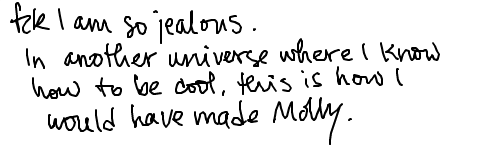 fck I am so jealous.
In another universe where I know
how to be cool, this is how I
would have made Molly.